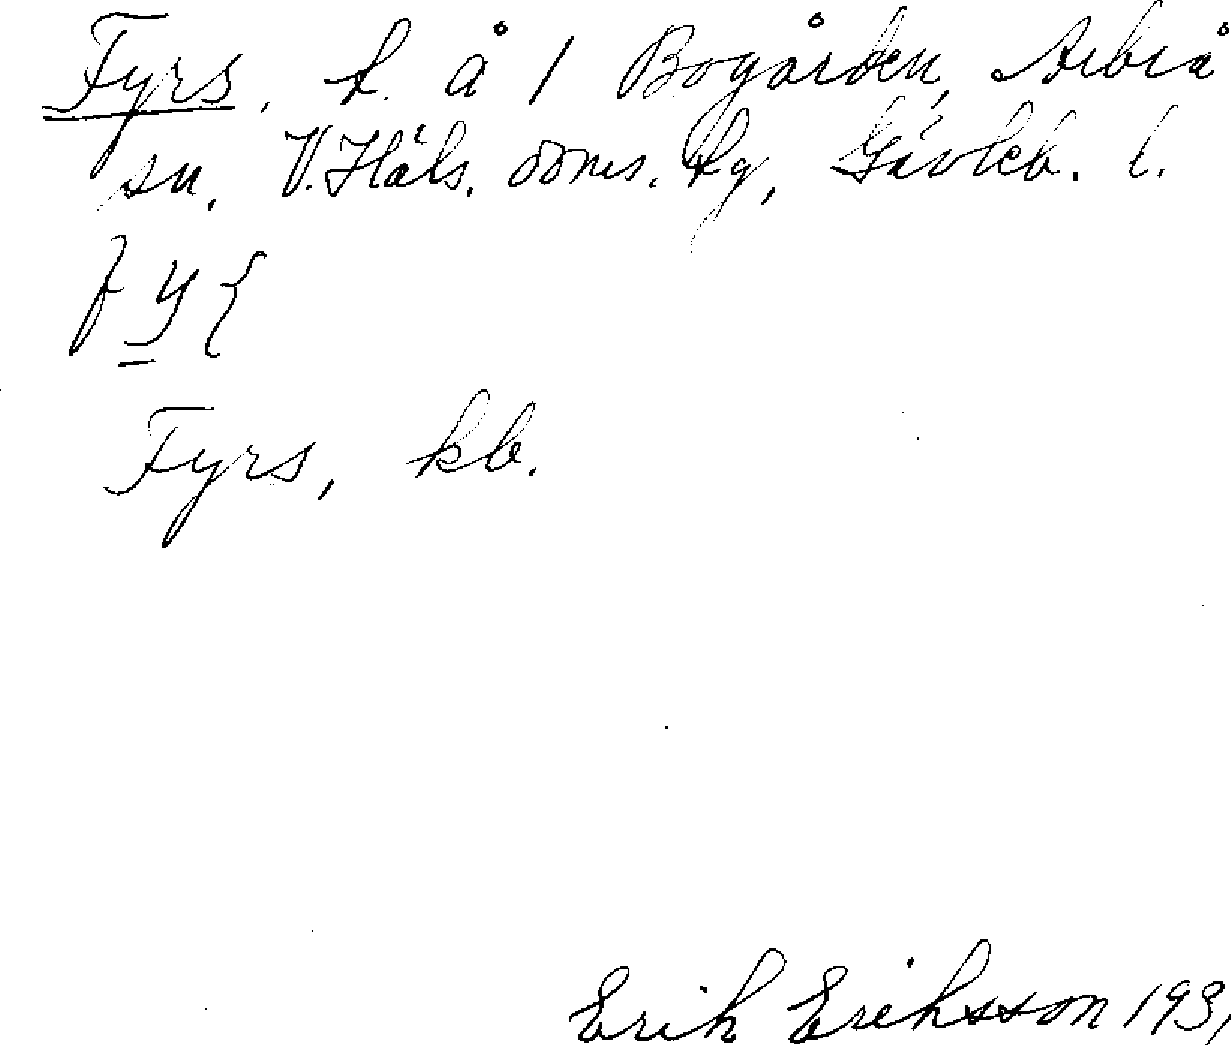 Fyrs, t. å 1 Bogården, Arbrå
sn, V. Häls. doms. tg, Gävleb. l.
Fyrs, kb.
Erik Eriksson 1931